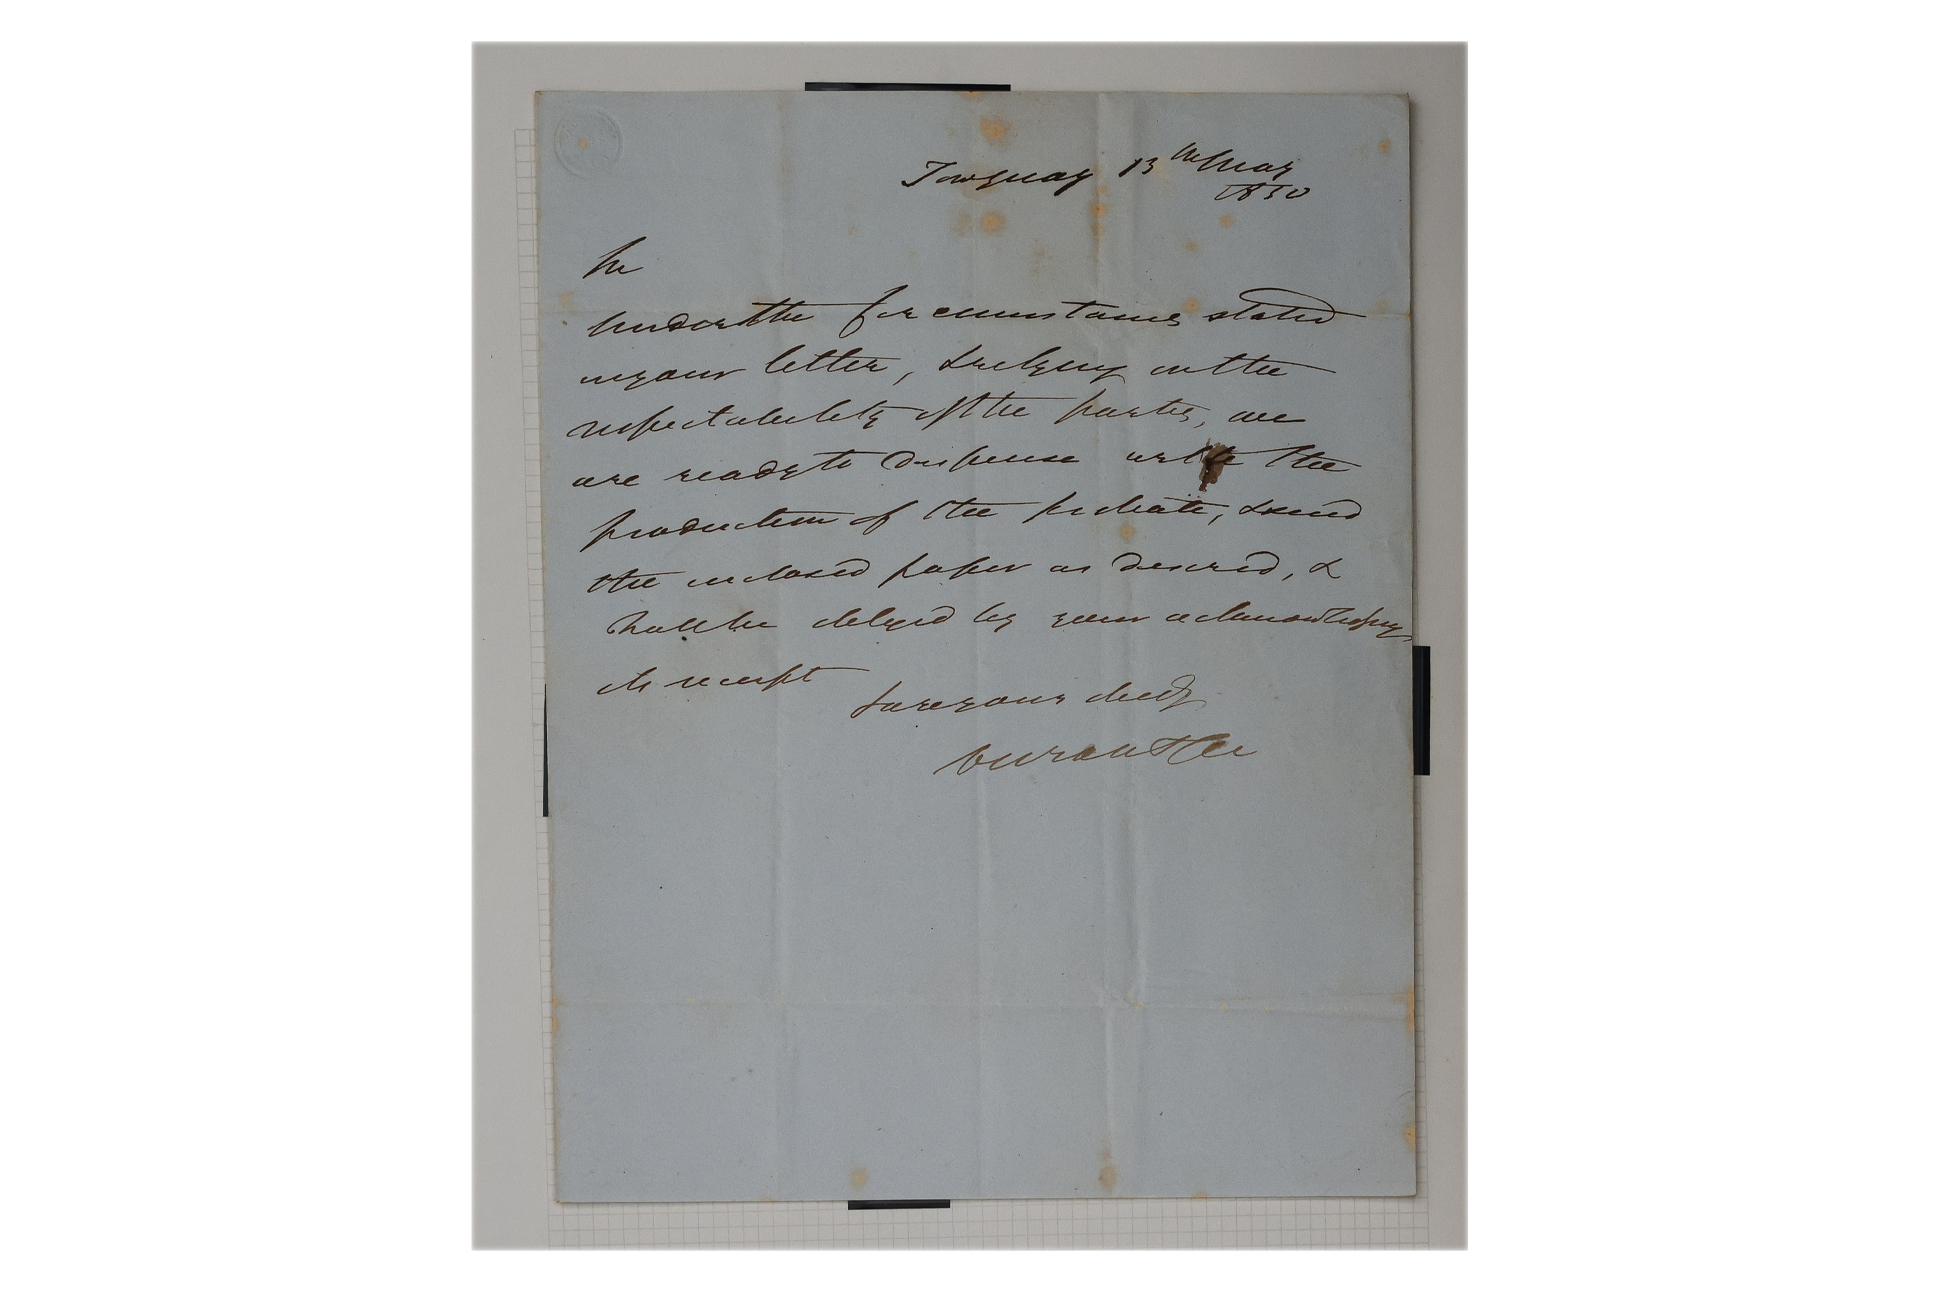 Torquay 13th May
1850
Sir
Under the circumstances stated
in your letter, & relying on the
respectability of the parties, we
are ready to dispense with the
production of the probate, & send
the inclosed paper as desired, &
shall be obliged by your acknowledging
its receipt
Sir your obedt